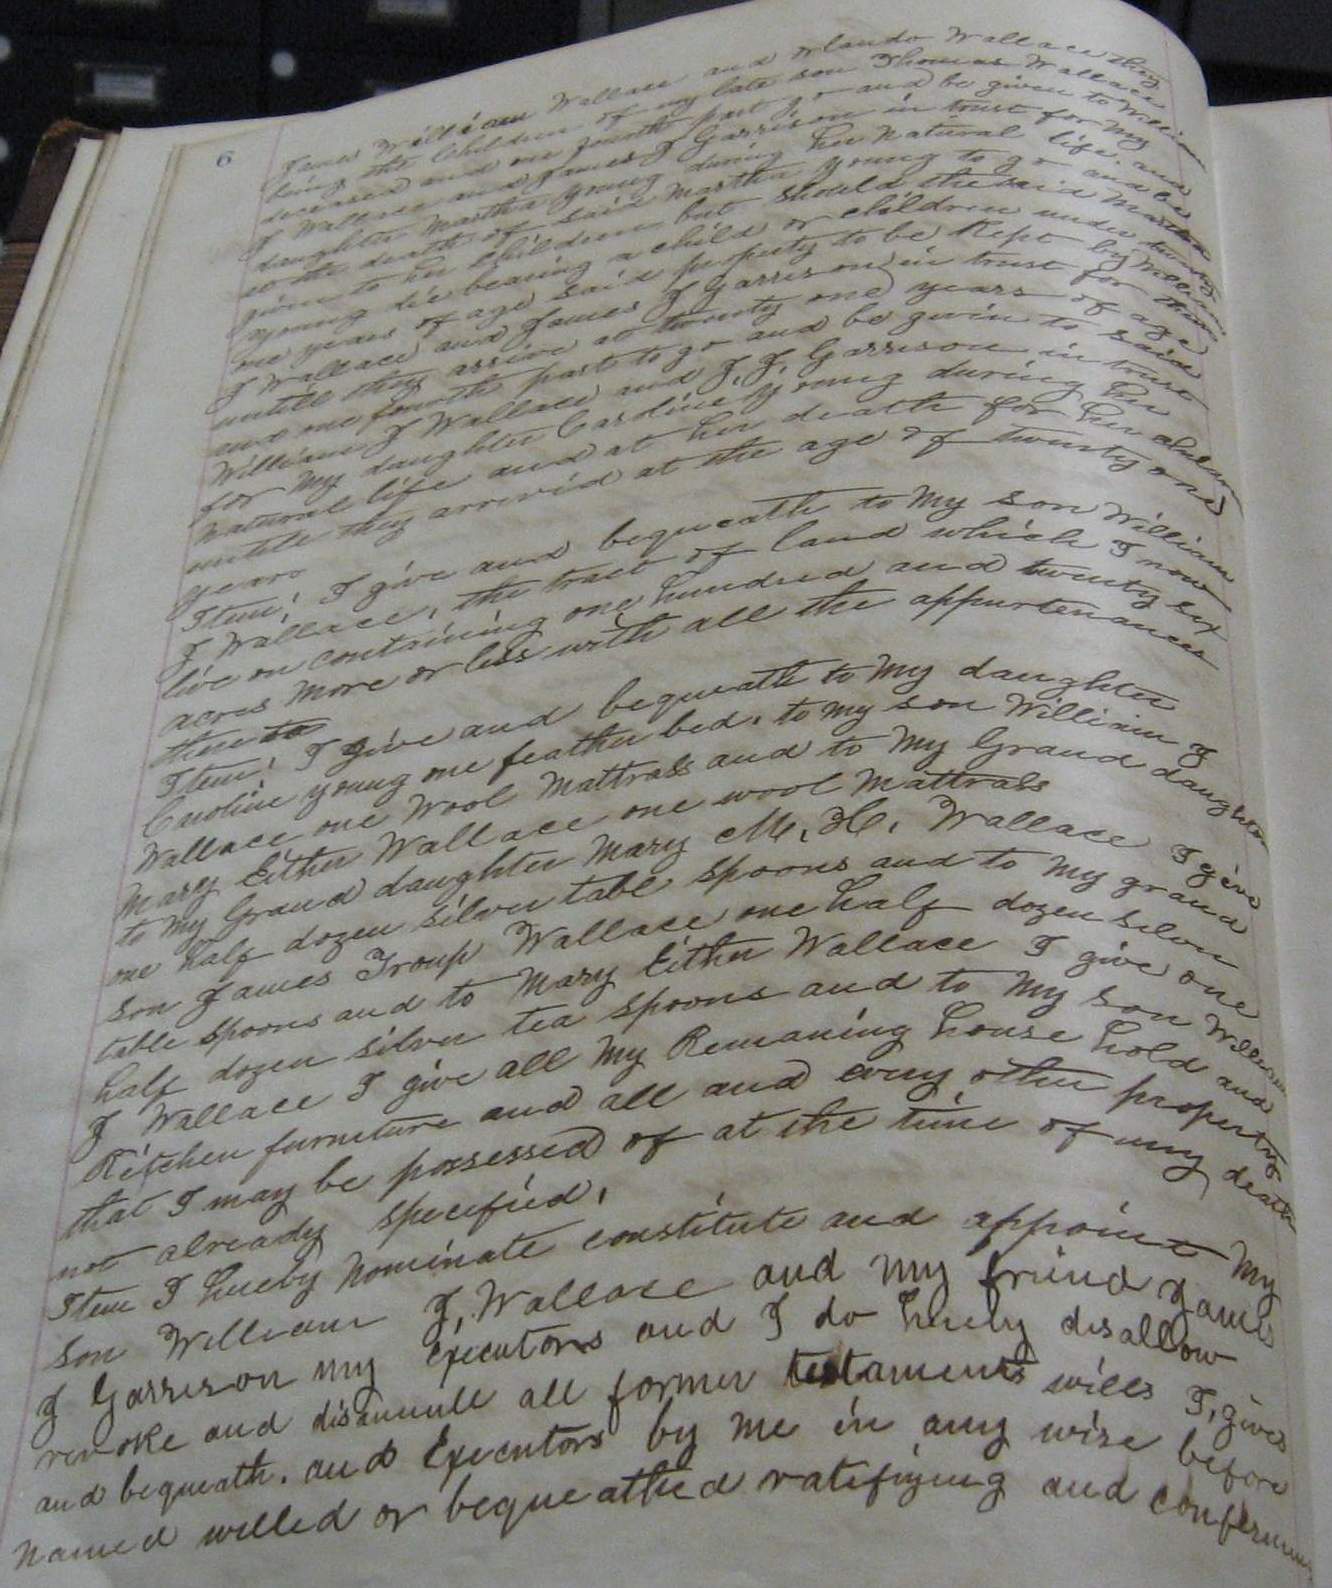 6
James William Wallace and Orlando Wallace they
being the children of my late son Thomas Wallace
deceased and one fourth part go and be given to William
J Wallace and James J Garrison in trust for my
daughter Martha Young during her natural life and
at the death of said Martha Young to go and be
given to her children but should the said Martha
Young die leaving a child or children under twenty
one years of age said property to be kept by William
J Wallace and James J Garrison in trust for them
untill they arrive at twenty one years of age
and one fourth part to go and be givin to said
William J Wallace and J, J, Garrison in trust
for my daughter Caroline Young during her
natural life and at her death for her children
untile they arrived at the age of twenty one
years
Item; I give and bequeath to my son William
J Wallace, the tract of land which I now
live on containing one hundred and twenty six
acres more or less with all the appurtenances
thereto
Item; I give and bequeath to my daughter
Caroline young one feather bed, to my son William J
Wallace one wool mattrass and to my Grand daughter
Mary Either Wallace one wool mattrass
to my Grand daughter Mary M, H, Wallace I give
one half dozen silver table spoons and to my grand
son James Troup Wallace one half dozen silver
table spoons and to Mary Either Wallace I give one
half dozen silver tea spoons and to my son William
J Wallace I give all my Remaning house hold and
Kitchen furneture and all and every other property
that I may be possessed of at the time of my death
not already specified,
Item I hereby nominate constitute and appoint my
son William J, Wallace and my friend James
J Garrison my Executors and I do hereby disallow
revoke and disannule all former testaments wills I, gives
and bequeath. and Executors by me in any wise before
named willed or bequeathed ratifiying and confirming